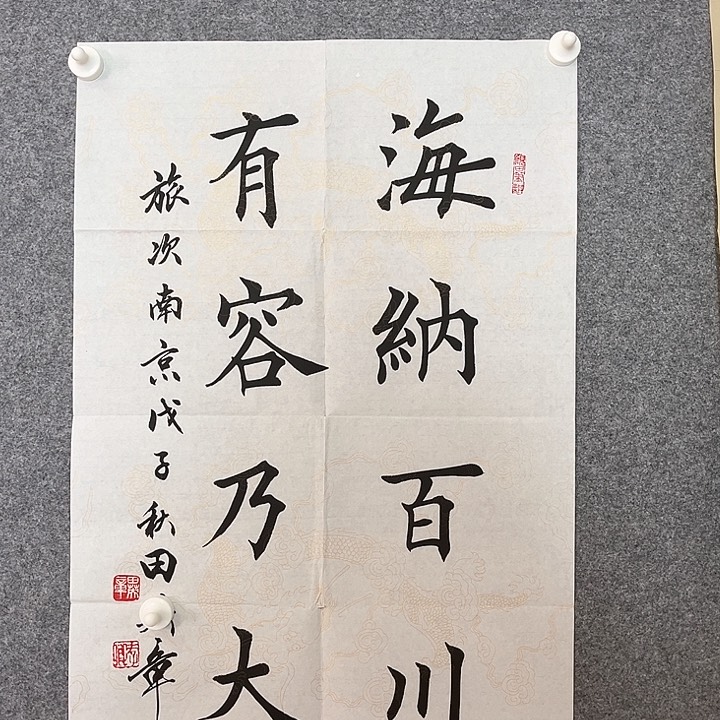 海納百川
有容乃大
旅次南京戊子秋田章